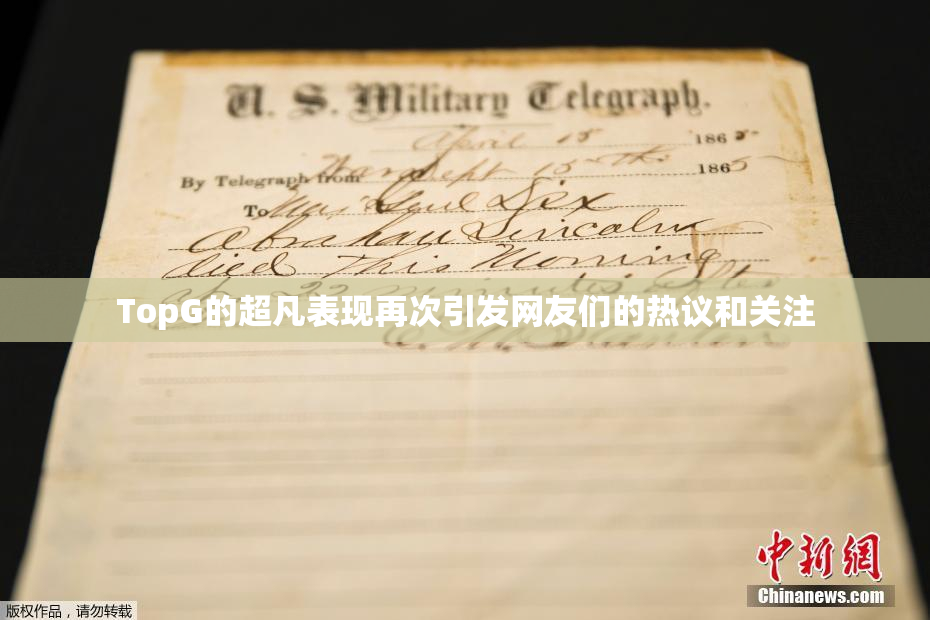 U. S. Military Telegraph.
April 15 1865
By Telegraph from War Dept 15th 1865
To Maj Genl Dix
Abraham Lincoln
died this Morning
at 22 minutes after
TopG的超凡表现再次引发网友们的热议和关注
E. M. Stanton
中新网
Chinanews.com
版权作品，请勿转载